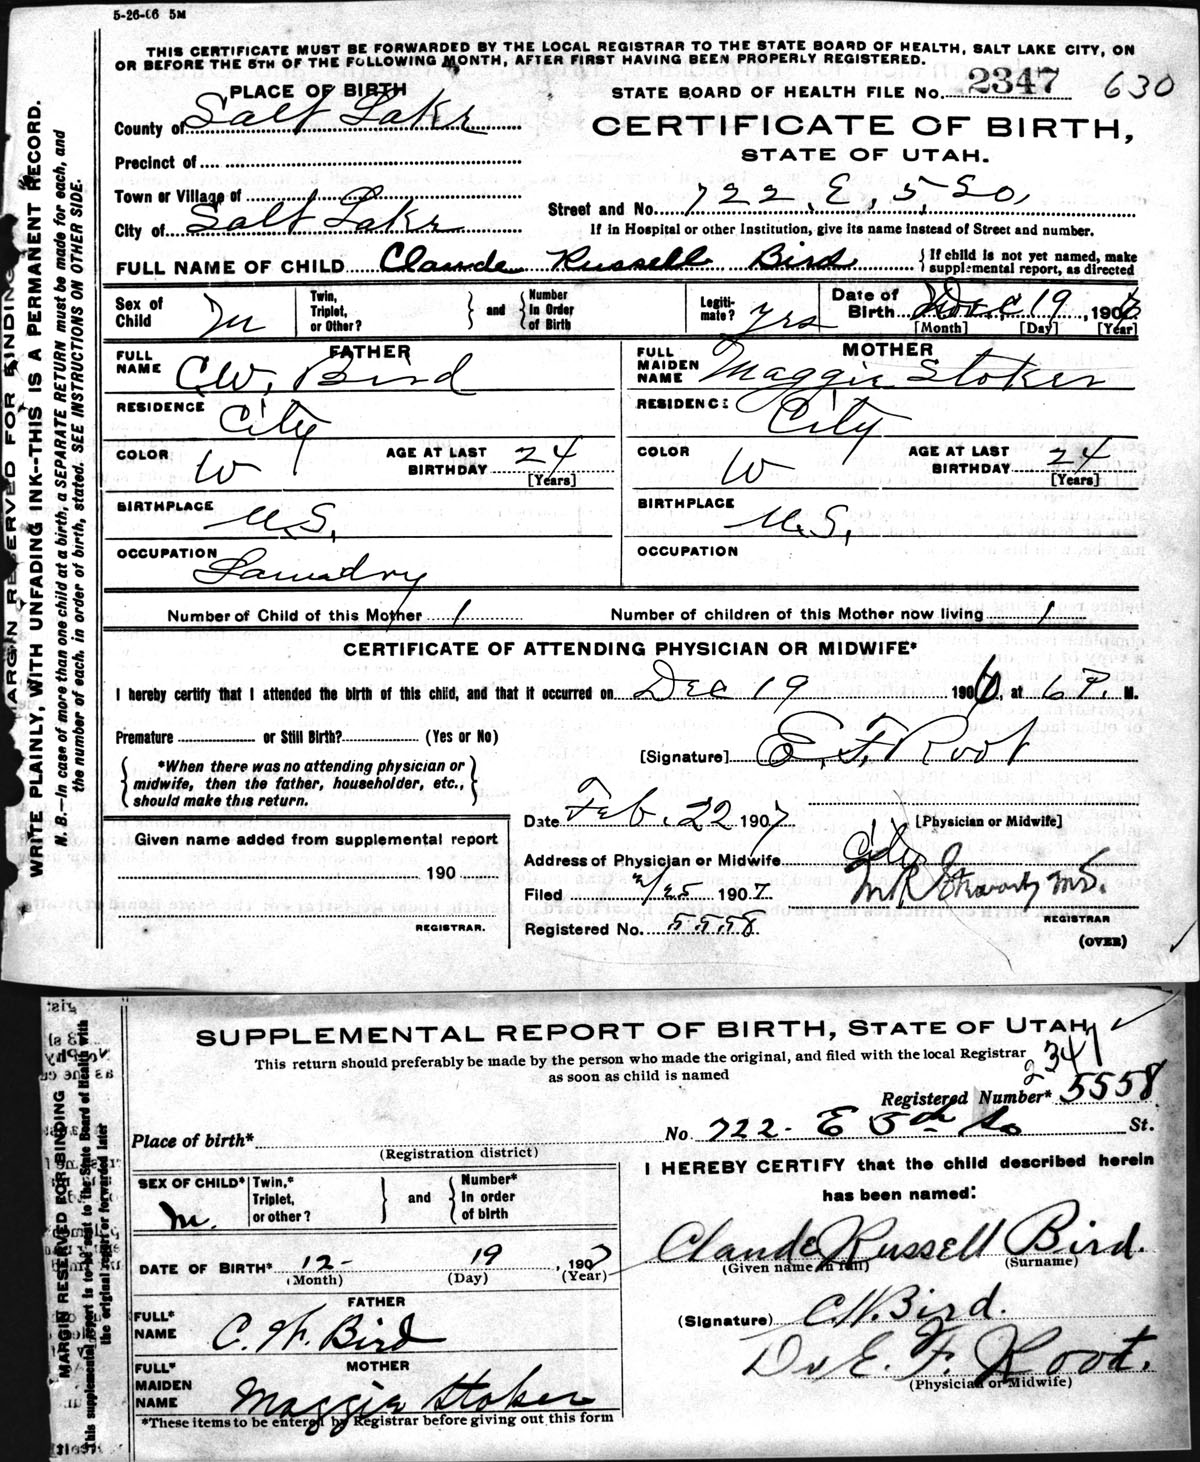 5-26-06 5M
THIS CERTIFICATE MUST BE FORWARDED BY THE LOCAL REGISTRAR TO THE STATE BOARD OF HEALTH, SALT LAKE CITY, ON
OR BEFORE THE 5TH OF THE FOLLOWING MONTH, AFTER FIRST HAVING BEEN PROPERLY REGISTERED.
PLACE OF BIRTH
STATE BOARD OF HEALTH FILE No. 2347 630
County of Salt Lake
CERTIFICATE OF BIRTH,
STATE OF UTAH.
Precinct of
Town or Village of
Street and No. 722, E, 5, So,
City of Salt Lake
If in Hospital or other Institution, give its name instead of Street and number.
FULL NAME OF CHILD Claude Russell Bird
If child is not yet named, make
supplemental report, as directed
Sex of
Child M
Twin,
Triplet,
or Other?
and
Number
in Order
of Birth
Legiti-
mate? yes
Date of
Birth Dec 19, 1906
[Month] [Day] [Year]
FATHER
FULL
NAME C.W. Bird
RESIDENCE City
COLOR W
AGE AT LAST
BIRTHDAY 24
[Years]
BIRTHPLACE U.S.
OCCUPATION Laundry
MOTHER
FULL
MAIDEN
NAME Maggie Stoker
RESIDENCE City
COLOR W
AGE AT LAST
BIRTHDAY 24
[Years]
BIRTHPLACE U.S.
OCCUPATION
Number of Child of this Mother 1
Number of children of this Mother now living 1
CERTIFICATE OF ATTENDING PHYSICIAN OR MIDWIFE*
I hereby certify that I attended the birth of this child, and that it occurred on Dec 19 1906, at 6 P. M.
Premature or Still Birth? (Yes or No)
[Signature] E. F. Root
*When there was no attending physician or
midwife, then the father, householder, etc.,
should make this return.
Date Feb. 22 1907
[Physician or Midwife]
Given name added from supplemental report
190
REGISTRAR.
Address of Physician or Midwife City
Filed 2/25 1907
REGISTRAR
Registered No. 5558
(OVER)
MARGIN RESERVED FOR BINDING
WRITE PLAINLY, WITH UNFADING INK--THIS IS A PERMANENT RECORD.
N. B.--In case of more than one child at a birth, a SEPARATE RETURN must be made for each, and
the number of each, in order of birth, stated. SEE INSTRUCTIONS ON OTHER SIDE.
SUPPLEMENTAL REPORT OF BIRTH, STATE OF UTAH
This return should preferably be made by the person who made the original, and filed with the local Registrar
as soon as child is named
2347
Registered Number* 5558
Place of birth*
(Registration district)
No 722- E 5th So St.
SEX OF CHILD*
M.
Twin,*
Triplet,
or other?
and
Number*
In order
of birth
DATE OF BIRTH* 12- 19, 190
(Month) (Day) (Year)
FATHER
FULL*
NAME C. W. Bird
MOTHER
FULL*
MAIDEN
NAME Maggie Stoker
*These items to be entered by Registrar before giving out this form
I HEREBY CERTIFY that the child described herein
has been named:
Claude Russell Bird.
(Given name in full) (Surname)
(Signature) C.W. Bird.
Dr E. F. Root.
(Physician or Midwife)
MARGIN RESERVED FOR BINDING
This supplemental report is to be sent to the State Board of Health with
the original report or forwarded later